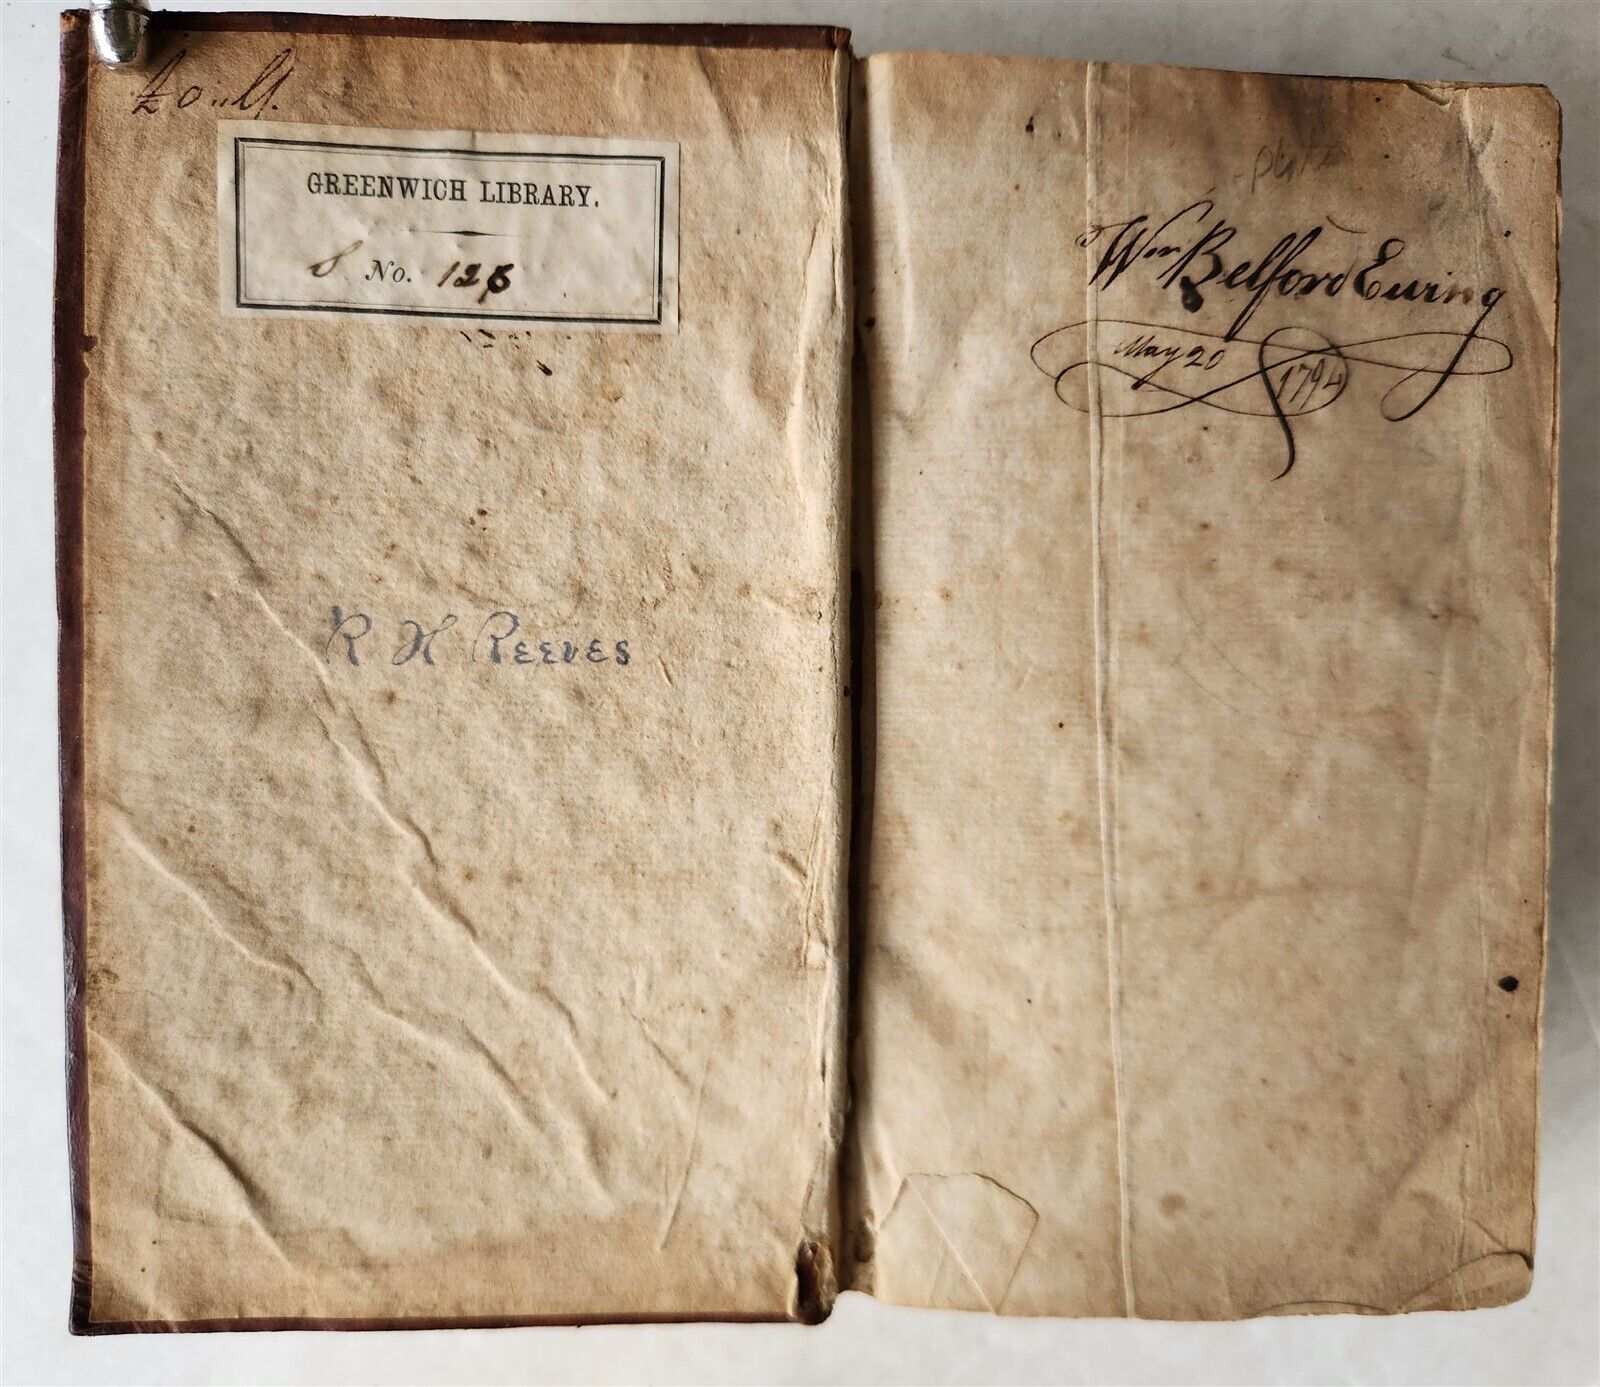 GREENWICH LIBRARY.
No. 126
R H REEVES
Wm Belford Ewing
May 20 1794